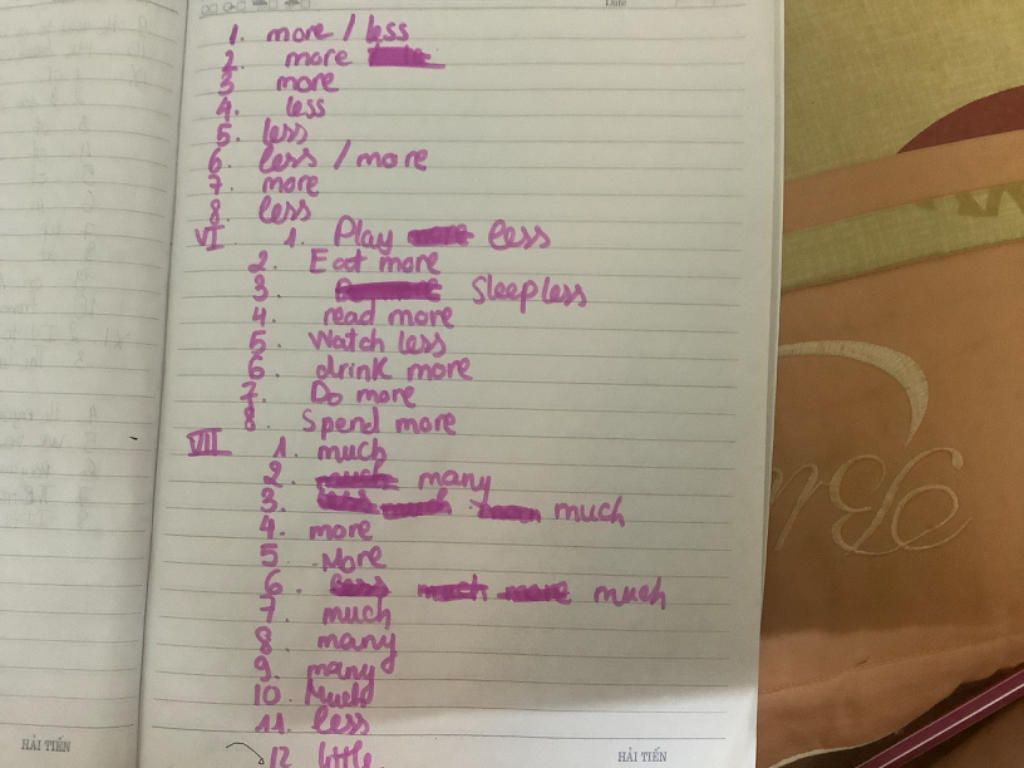 Date
1. more / less
2. more
3 more
4. less
5. less
6. less / more
7. more
8. less
VI 1. Play less
2. Eat more
3. Sleep less
4. read more
5. Watch less
6. drink more
7. Do more
8. Spend more
VII 1. much
2. many
3. much
4. more
5. More
6. much
7. much
8. many
9. many
10. Much
11. less
12 little.
HẢI TIẾN
HẢI TIẾN